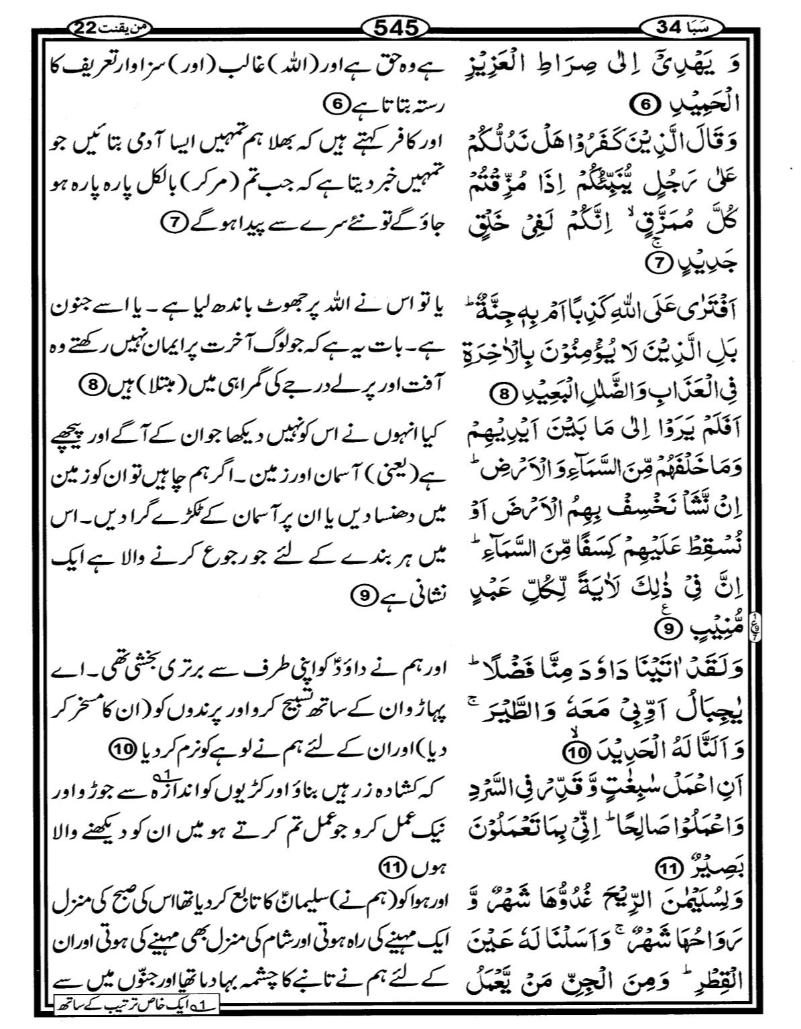 سَبَا 34
545
من یقنت 22
وَ یَهْدِیْۤ اِلٰی صِرَاطِ الْعَزِیْزِ
الْحَمِیْدِ 6
وَقَالَ الَّذِیْنَ كَفَرُوْا هَلْ نَدُلُّكُمْ
عَلٰی رَجُلٍ یُّنَبِّئُكُمْ اِذَا مُزِّقْتُمْ
كُلَّ مُمَزَّقٍ ۙ اِنَّكُمْ لَفِیْ خَلْقٍ
جَدِیْدٍ ۚ 7
اَفْتَرٰی عَلَی اللّٰهِ كَذِبًا اَمْ بِهٖ جِنَّةٌ ؕ
بَلِ الَّذِیْنَ لَا یُؤْمِنُوْنَ بِالْاٰخِرَةِ
فِی الْعَذَابِ وَالضَّلٰلِ الْبَعِیْدِ 8
اَفَلَمْ یَرَوْا اِلٰی مَا بَیْنَ اَیْدِیْهِمْ
وَمَا خَلْفَهُمْ مِّنَ السَّمَآءِ وَالْاَرْضِ ؕ
اِنْ نَّشَاْ نَخْسِفْ بِهِمُ الْاَرْضَ اَوْ
نُسْقِطْ عَلَیْهِمْ كِسَفًا مِّنَ السَّمَآءِ ؕ
اِنَّ فِیْ ذٰلِكَ لَاٰیَةً لِّكُلِّ عَبْدٍ
مُّنِیْبٍ 9 ع
وَلَقَدْ اٰتَیْنَا دَاوٗدَ مِنَّا فَضْلًا ؕ
یٰجِبَالُ اَوِّبِیْ مَعَهٗ وَالطَّیْرَ ۚ
وَاَلَنَّا لَهُ الْحَدِیْدَ ۙ 10
اَنِ اعْمَلْ سٰبِغٰتٍ وَّقَدِّرْ فِی السَّرْدِ
وَاعْمَلُوْا صَالِحًا ؕ اِنِّیْ بِمَا تَعْمَلُوْنَ
بَصِیْرٌ 11
وَلِسُلَیْمٰنَ الرِّیْحَ غُدُوُّهَا شَهْرٌ وَّ
رَوَاحُهَا شَهْرٌ ۚ وَاَسَلْنَا لَهٗ عَیْنَ
الْقِطْرِ ؕ وَمِنَ الْجِنِّ مَنْ یَّعْمَلُ
ہے وہ حق ہے اور (اللہ) غالب (اور) سزاوار تعریف کا
رستہ بتاتا ہے 6
اور کافر کہتے ہیں کہ بھلا ہم تمہیں ایسا آدمی بتائیں جو
تمہیں خبر دیتا ہے کہ جب تم (مرکر) بالکل پارہ پارہ ہو
جاؤ گے تو نئے سرے سے پیدا ہو گے 7
یا تو اس نے اللہ پر جھوٹ باندھ لیا ہے۔ یا اسے جنون
ہے۔ بات یہ ہے کہ جو لوگ آخرت پر ایمان نہیں رکھتے وہ
آفت اور پرلے درجے کی گمراہی میں (مبتلا) ہیں 8
کیا انہوں نے اس کو نہیں دیکھا جو ان کے آگے اور پیچھے
ہے (یعنی) آسمان اور زمین۔ اگر ہم چاہیں تو ان کو زمین
میں دھنسا دیں یا ان پر آسمان کے ٹکڑے گرا دیں۔ اس
میں ہر بندے کے لئے جو رجوع کرنے والا ہے ایک
نشانی ہے 9
اور ہم نے داؤدؑ کو اپنی طرف سے برتری بخشی تھی۔ اے
پہاڑو ان کے ساتھ تسبیح کرو اور پرندوں کو (ان کا مسخر کر
دیا) اور ان کے لئے ہم نے لوہے کو نرم کردیا 10
کہ کشادہ زرہیں بناؤ اور کڑیوں کو اندازہ 1؎ سے جوڑو اور
نیک عمل کرو جو عمل تم کرتے ہو میں ان کو دیکھنے والا
ہوں 11
اور ہوا کو (ہم نے) سلیمانؑ کا تابع کردیا تھا اس کی صبح کی منزل
ایک مہینے کی راہ ہوتی اور شام کی منزل بھی مہینے کی ہوتی اور ان
کے لئے ہم نے تانبے کا چشمہ بہا دیا تھا اور جنّوں میں سے
1؎ ایک خاص ترتیب کے ساتھ